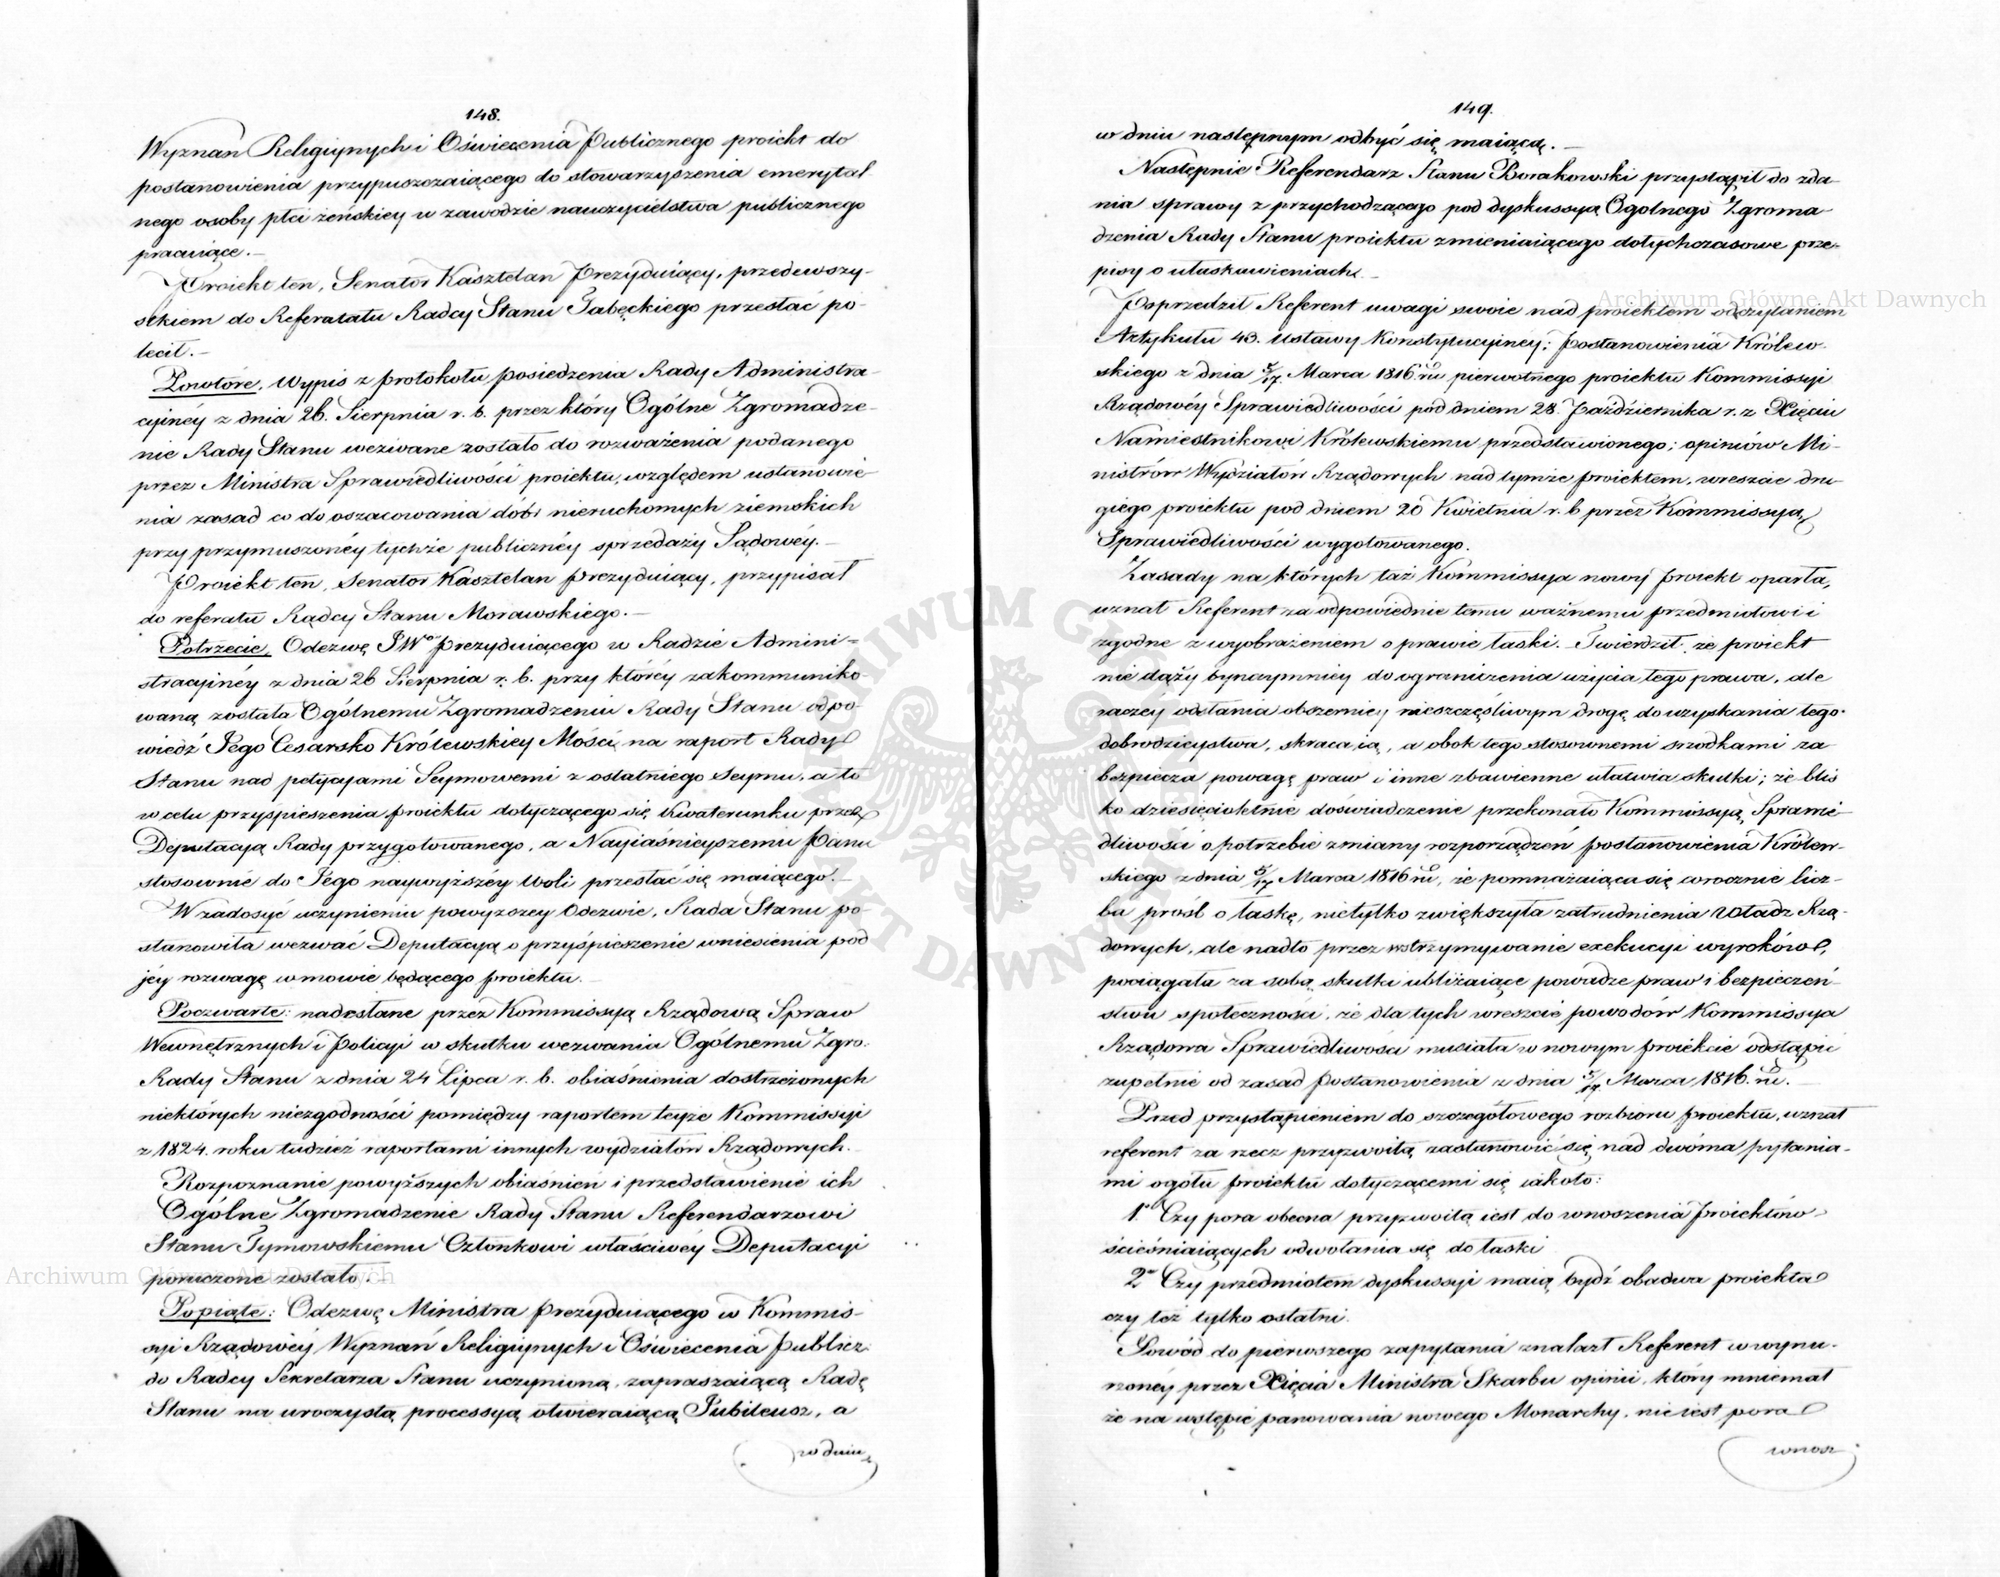 148.
Wyznań Religiynych i Oświecenia Publicznego proiekt do
postanowienia przypuszczaiącego do stowarzyszenia emerytal
nego osoby płci żeńskiey w zawodzie nauczycielstwa publicznego
pracuiące.—
Proiekt ten, Senator Kasztelan Prezyduiący, przedewszy-
stkiem do Referatatu Radcy Stanu Gałęckiego przesłać po
lecił.—
Powtóre, Wypis z protokołu posiedzenia Rady Administra-
cyinéy z dnia 26. Sierpnia r. b. przez który Ogólne Zgromadze-
nie Rady Stanu wezwane zostało do rozważenia podanego
przez Ministra Sprawiedliwości proiektu, względem ustanowie
nia zasad co do oszacowania dóbr nieruchomych ziemskich
przy przymuszonéy tychże publicznéy sprzedaży Sądowéy.—
Proiekt ten, Senator Kasztelan Prezyduiący, przypisał
do referatu Radcy Stanu Morawskiego.—
Potrzecie, Odezwę JWo Prezyduiącego w Radzie Admini-
stracyinéy z dnia 26 Sierpnia r. b. przy któréy zakommuniko
waną została Ogólnemu Zgromadzeniu Rady Stanu odpo-
wiedź Jego Cesarsko Królewskiey Mości, na raport Rady
Stanu nad petycyami Seymowemi z ostatniego Seymu, a to
w celu przyspieszenia proiektu dotyczącego się kwaterunku przez
Deputacyą Rady przygotowanego, a Nayiaśnieyszemu Panu
stosownie do Jego naywyższéy Woli przesłać się maiącego.—
W zadosyć uczynieniu powyzszey Odezwie, Rada Stanu po
stanowiła wezwać Deputacyą o przyśpieszenie wniesienia pod
jéy rozwagę w mowie będącego proiektu.—
Poczwarte: nadesłane przez Kommissyą Rządową Spraw
Wewnętrznych i Policyi w skutku wezwania Ogólnemu Zgro.
Rady Stanu z dnia 24 Lipca r. b. obiaśnienia dostrzeżonych
niektórych niezgodności pomiędzy raportem teyże Kommissyi
z 1824. roku tudzież raportami innych wydziałów Rządowych.—
Rozpoznanie powyższych obiaśnień i przedstawienie ich
Ogólne Zgromadzenie Rady Stanu Referendarzowi
Stanu Tymowskiemu Członkowi właściwéy Deputacyi
poruczone zostało.—
Popiąte: Odezwę Ministra Prezyduiącego w Kommis-
syi Rządowéy Wyznań Religiynych i Oświecenia Publicz.
do Radcy Sekretarza Stanu uczynioną, zapraszaiącą Radę
Stanu na uroczystą processyą otwieraiącą Jubileusz, a
w dniu
149.
w dniu następnym odbyć się maiącą.—
Następnie Referendarz Stanu Borakowski przystąpił do zda-
nia sprawy z przychodzącego pod dyskussyą Ogolnego Zgroma
dzenia Rady Stanu proiektu zmieniaiącego dotychczasowe prze-
pisy o ułaskawieniach.—
Poprzedził Referent uwagi swoie nad proiektem odczytaniem
Artykułu 43. Ustawy Konstytucyiney; Postanowienia Królew-
skiego z dnia 5/17 Marca 1816 ru pierwotnego proiektu Kommissyi
Rządowéy Sprawiedliwości pod dniem 28. Października r. z. Xięciu
Namiestnikowi Królewskiemu przedstawionego; opiniów Mi-
nistrów Wydziałów Rządowych nad tymże proiektem, wreszcie dru-
giego proiektu pod dniem 20 Kwietnia r. b przez Kommissyą
Sprawiedliwości wygotowanego.
Zasady na których taż Kommissya nowy proiekt oparła,
uznał Referent za odpowiednie temu ważnemu przedmiotowi i
zgodne z wyobrażeniem o prawie łaski. Twierdził, że proiekt
nie dąży bynaymniey do ograniczenia użycia tego prawa, ale
raczéy odsłania obszerniey nieszczęśliwym drogę do uzyskania tego
dobrodzieystwa, skraca ią, a obok tego stosownemi srodkami za
bezpiecza powagę praw i inne zbawienne ułatwia skutki; że blis
ko dziesięcioletnie doświadczenie przekonało Kommissyą Sprawie
dliwości o potrzebie zmiany rozporządzeń Postanowienia Królew-
skiego z dnia 5/17 Marca 1816 ru, że pomnażaiąca się corocznie licz-
ba próśb o łaskę, nietylko zwiększyła zatrudnienia Władz Rzą-
dowych, ale nadto przez wstrzymywanie exekucyi wyroków,
pociągała za sobą skutki ubliżaiące powadze praw i bezpieczeń-
stwu społeczności, że dla tych wreszcie powodów Kommissya
Rządowa Sprawiedliwości musiała w nowym proiekcie odstąpić
zupełnie od zasad Postanowienia z dnia 5/17 Marca 1816. ru.—
Przed przystąpieniem do szczegółowego rozbioru proiektu, uznał
referent za rzecz przyzwoitą zastanowić się nad dwóma pytania-
mi ogółu proiektu dotyczącemi się iakoto:
1o Czy pora obecna przyzwoitą iest do wnoszenia Proiektów
ścieśniaiących odwołania się do łaski
2o Czy przedmiotem dyskussyi maią bydź obadwa proiekta
czy też tylko ostatni.
Powód do pierwszego zapytania znalazł Referent w wynu-
rzonéy przez Xięcia Ministra Skarbu opinii, który mniemał
że na wstępie panowania nowego Monarchy, nie iest pora
wnosz
Archiwum Główne Akt Dawnych
Archiwum Główne Akt Dawnych
ARCHIWUM GŁÓWNE AKT DAWNYCH